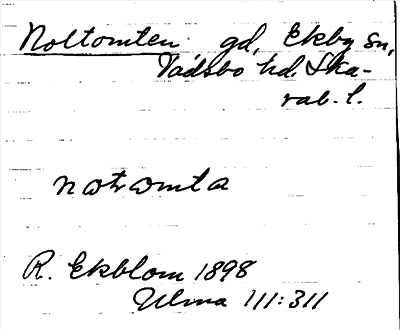 Noltomten gd, Ekby sn,
Vadsbo hd. Ska-
rab. l.
R. Ekblom 1898
Ulma 111:311